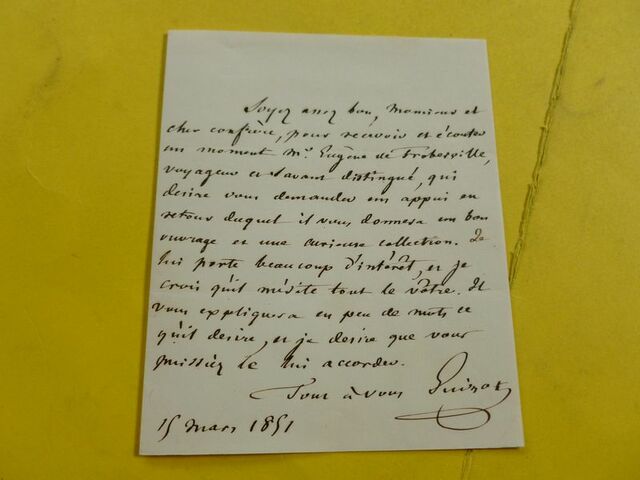 Soyez assez bon, Monsieur et
cher confrère, pour recevoir et écouter
un moment Mr. Eugène de Froberville,
voyageur et savant distingué, qui
desire vous demander un appui en
retour duquel il vous donnera un bon
ouvrage et une curieuse collection. Je
lui porte beaucoup d'intérêt, et je
crois qu'il mérite tout le vôtre. Il
vous expliquera en peu de mots ce
qu'il desire, et je desire que vous
puissiez le lui accorder.
Tout à vous Guizot
15 mars 1851